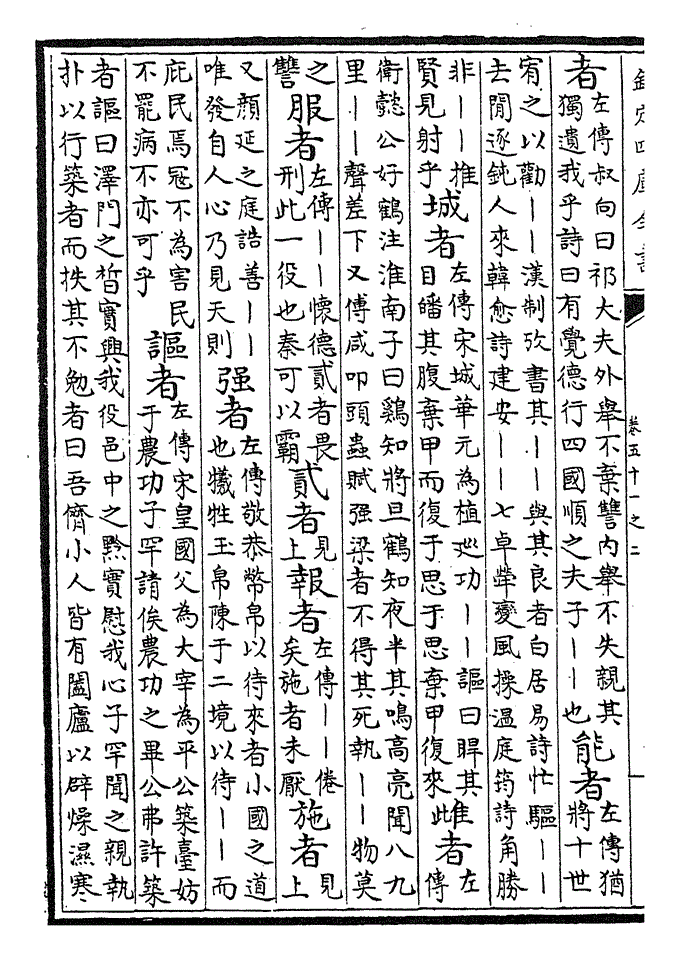 欽定四庫全書
卷五十一之二
者
左傳叔向曰祁大夫外舉不棄讐内舉不失親其
獨遺我乎詩曰有覺德行四國順之夫子丨丨也
能者
左傳猶
將十世
宥之以勸丨丨漢制攷書其丨丨與其良者白居易詩忙驅丨丨
去閒逐鈍人來韓愈詩建安丨丨七卓犖變風操温庭筠詩角勝
非丨丨推
賢見射乎
城者
左傳宋城華元為植廵功丨丨謳曰睅其
目皤其腹棄甲而復于思于思棄甲復來
雌者
左
傳
衛懿公好鶴注淮南子曰鷄知將旦鶴知夜半其鳴高亮聞八九
里丨丨聲差下又傅咸叩頭蟲賦强梁者不得其死執丨丨物莫
之
讐
服者
左傳丨丨懷德貳者畏
刑此一役也秦可以霸
貳者
見
上
報者
左傳丨丨倦
矣施者未厭
施者
見
上
又顔延之庭誥善丨丨
唯發自人心乃見天則
强者
左傳敬恭幣帛以待來者小國之道
也犧牲玉帛陳于二境以待丨丨而
庇民焉冦不為害民
不罷病不亦可乎
謳者
左傳宋皇國父為大宰為平公築臺妨
于農功子罕請俟農功之畢公弗許築
者謳曰澤門之皙實興我役邑中之黔實慰我心子罕聞之親執
扑以行築者而抶其不勉者曰吾儕小人皆有闔廬以辟燥濕寒